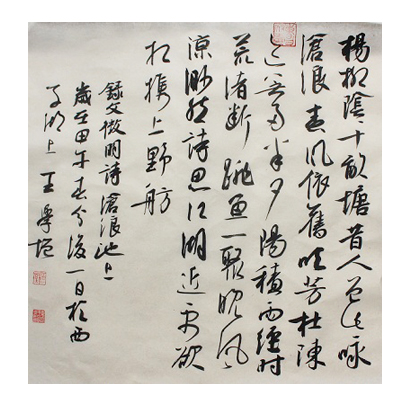 楊柳陰〻十畝塘昔人曾此咏
滄浪春風依舊吹芳杜陳
迹無多半夕陽積雨經時
荒渚斷跳魚一聚晚風
凉渺然詩思江湖近更欲
相攜上野航
錄文徵明詩滄浪池上
歲在甲午春分後一日於西
子湖上王學